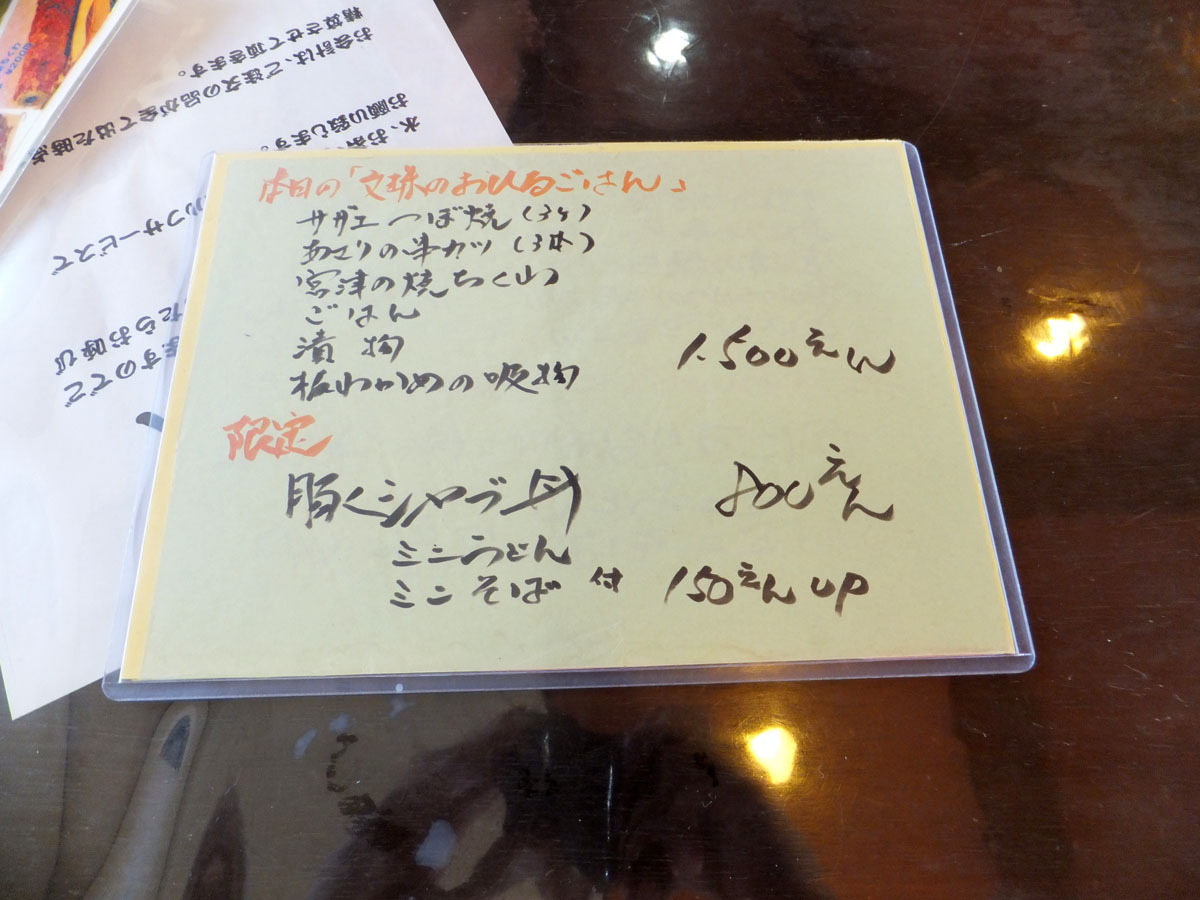 本日の「文珠のおひるごはん」
サザエつぼ焼(3ケ)
あさりの串カツ(3本)
宮津の焼ちくわ
ごはん
漬物
板わかめの吸物
1.500えん
限定
豚しゃぶ丼 800えん
ミニうどん
ミニそば 付 150えんUP
お会計は、ご注文の品が全て出た時点
精算させて頂きます。
水、お
お願い致します。
ルフサービスで
たらお呼び
ますのでで
ちくわ
¥200円